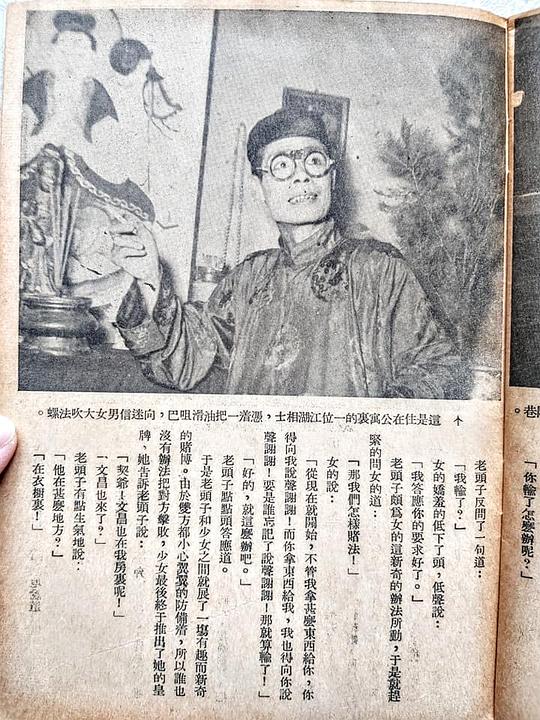 「你輸了怎麼辦呢？」
↑ 這是住在公寓裏的一位江湖相士，憑着一把油滑咀巴，向迷信男女大吹法螺。
老頭子反問了一句道：
「我輸了？」
女的嬌羞的低下了頭，低聲說：
「我答應你的要求好了。」
老頭子頗爲女的這新奇的辦法所動，于是就趕
緊的問女的道：
「那我們怎樣賭法！」
女的說：
「從現在就開始，不管我拿甚麼東西給你，你
得向我說聲謝謝！而你拿東西給我，我也得向你說
聲謝謝！要是誰忘記了說聲謝謝！那就算輸了！」
「好的，就這麼辦吧。」
老頭子點點頭答應道。
于是老頭子和少女之間就展了一塲有趣而新奇
的賭博。由於雙方都小心翼翼的防備着，所以誰也
沒有辦法把對方擊敗，少女最後終于推出了她的皇
牌，她告訴老頭子說：
「契爺！文昌也在我房裏呢！」
「文昌也來了？」
老頭子有點生氣地說：
「他在甚麼地方？」
「在衣櫥裏！」